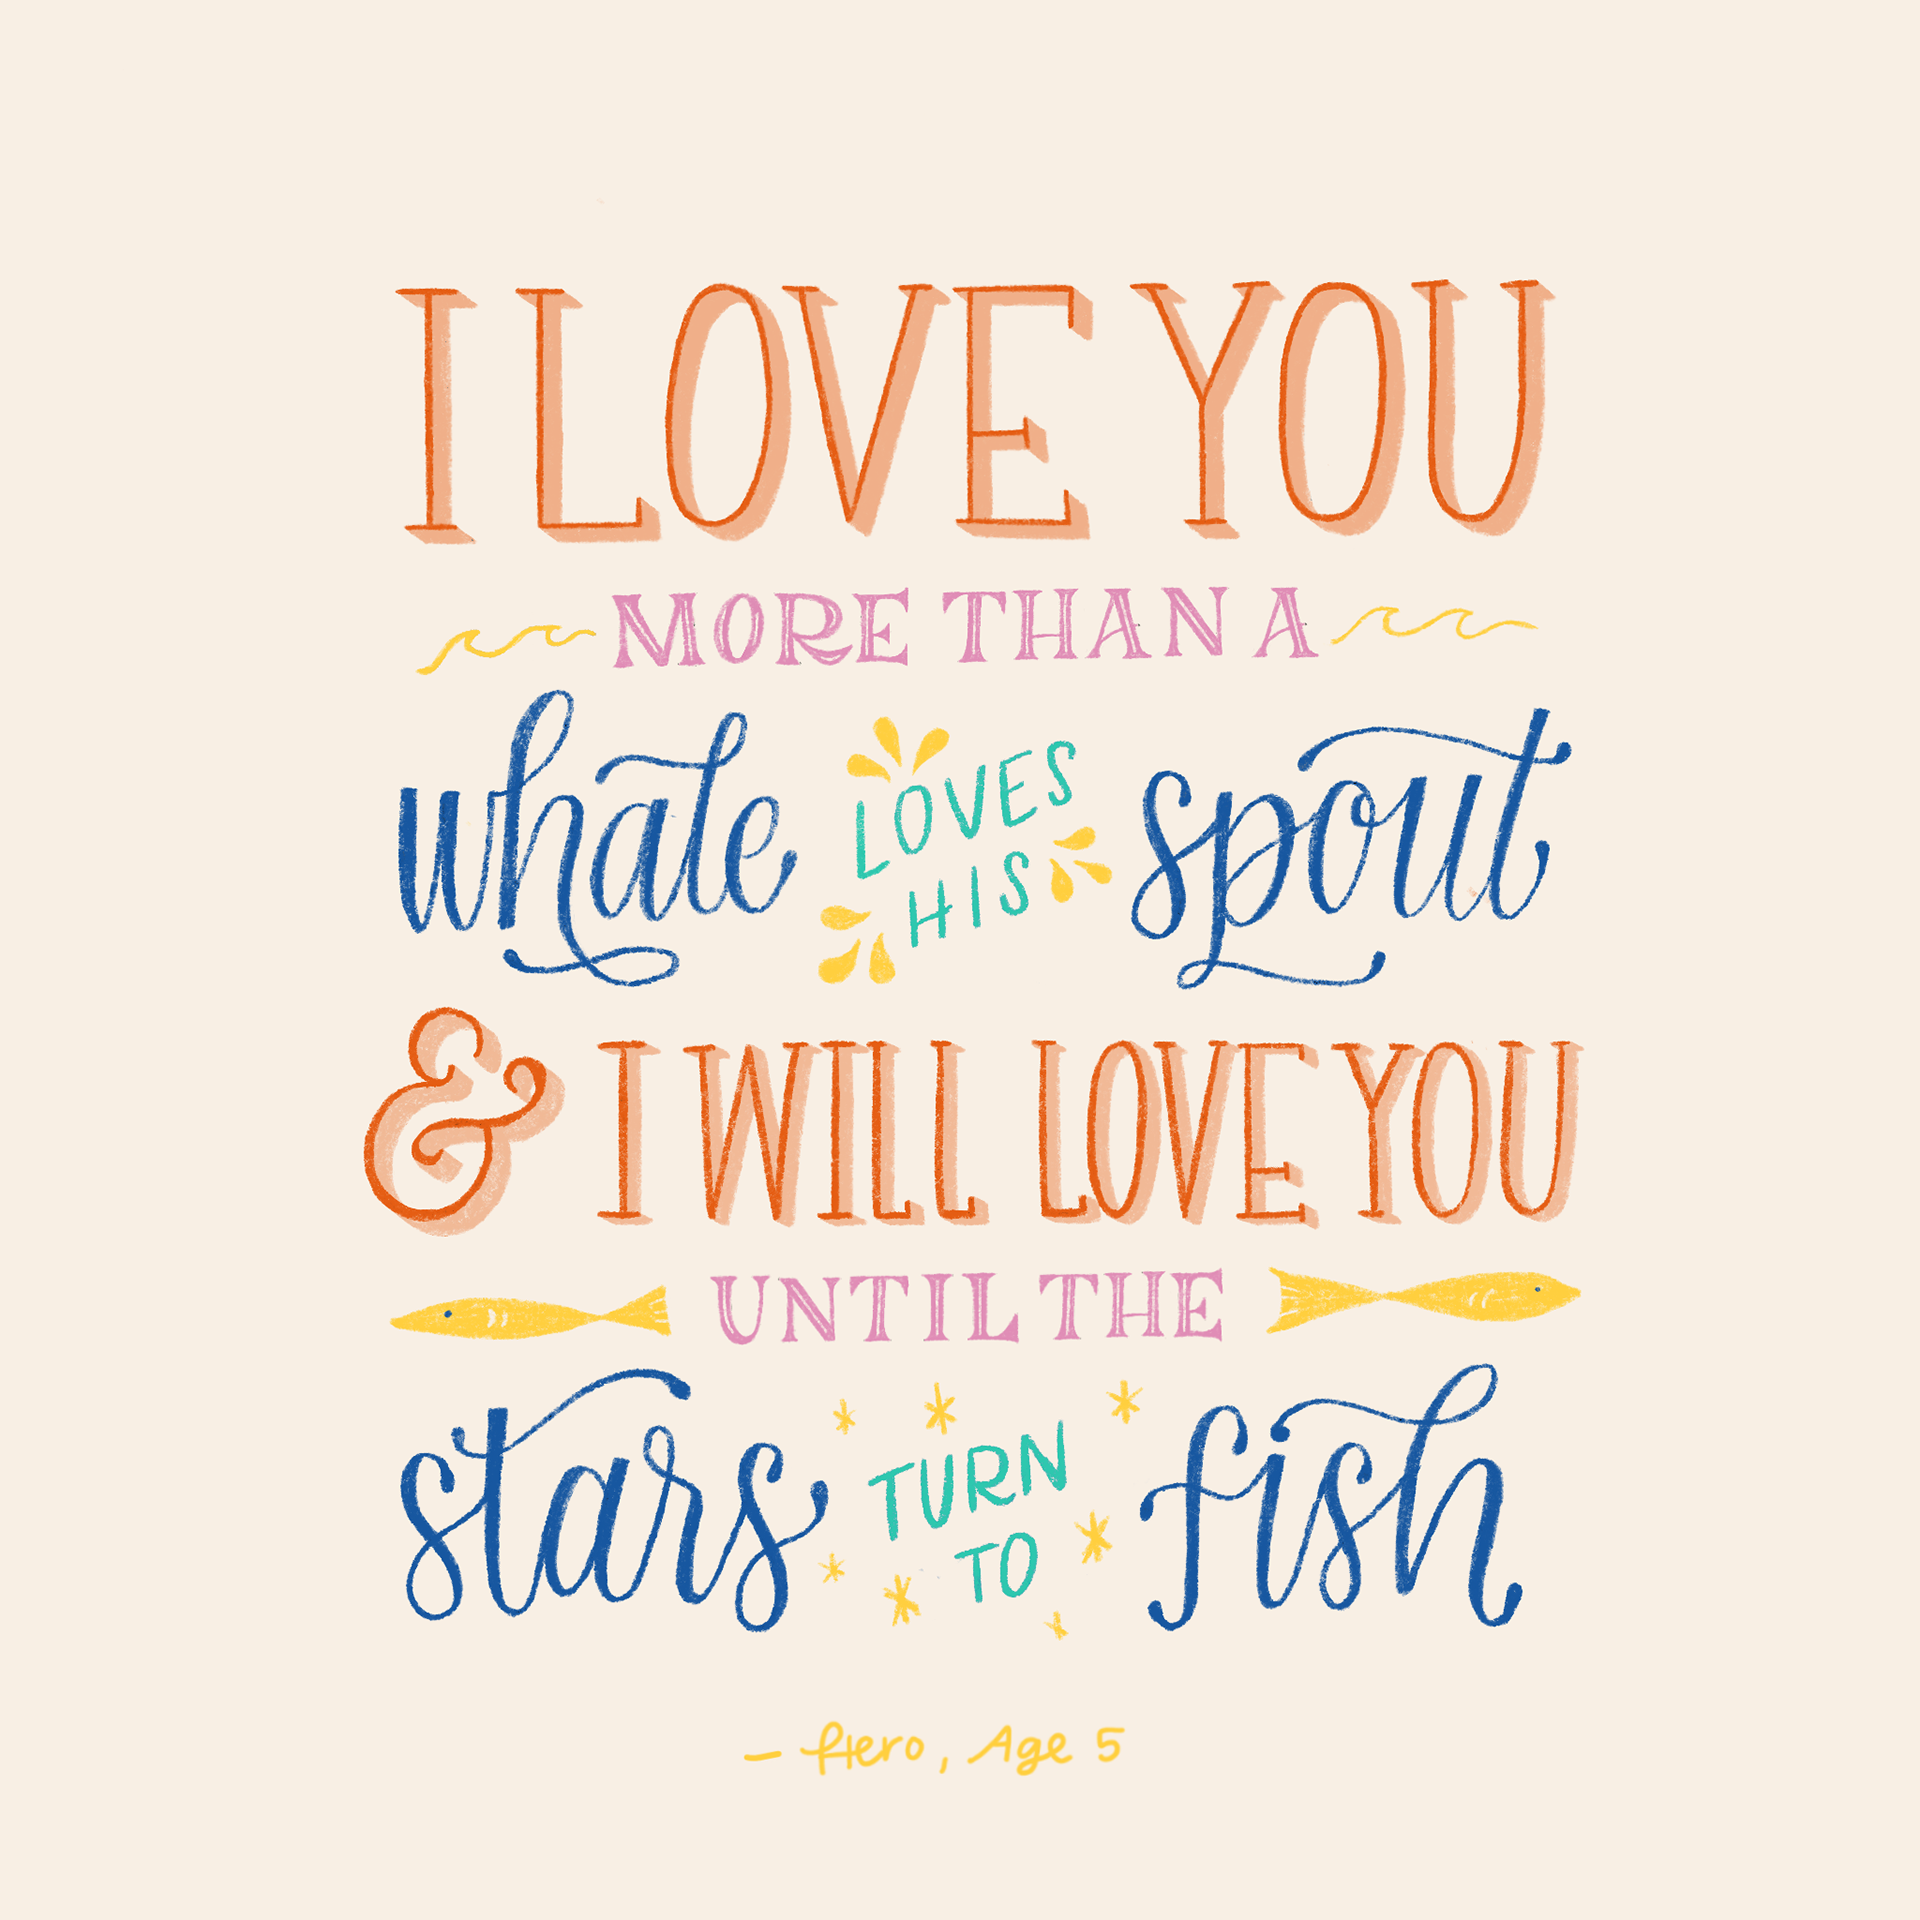 I LOVE YOU
MORE THAN A
whale LOVES HIS spout
& I WILL LOVE YOU
UNTIL THE
stars TURN TO fish
– Hero, Age 5